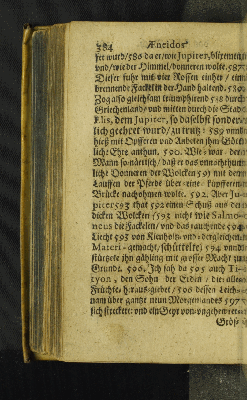 384 Æneidos
ret ward/586 da er/wie Jupiter, blitzenen
und/wie der Himmel/donneren wolte. 587.
Dieser fuhr mit vier Rossen einher / eine
brennende Fackel in der Hand haltend. 589.
Zog also gleichsam triumphirend 588 durch
Griechenland/ und mitten durch die Stadt
Elis, dem Jupiter, so daselbst sonder-
lich geehret ward/ zu trutz: 589 und
hieß mit Opfferen und Anbeten ihm Göttli-
liche Ehre anthun. 590. Wie war dem
Mann so närrisch/ daß er das unnachthun-
liche Donneren der Wolcken 591 mit dem
Lauffen der Pferde über eine kupfferene
Brücke nachohmen wolte. 592. Aber Ju-
piter 593 that 592 einen Schuß aus den
dicken Wolcken (593 nicht wie Salmo-
neus die Fackelen/ und das rauchende 594
Liecht 593 von Kienholtz und dergleichen
Materi gemacht/ schüttelte) 594 und
stürtzete ihn gähling mit grosser Macht zu
Grunde. 506. Ich sah da 595 auch Ti-
tyon, den Sohn der Erden / die alle
Früchte heraus giebet / 506 dessen Leich-
nam über gantze neun Morgenlandes 597
sich streckete: und ein Geyr von ungeheurer
Größe